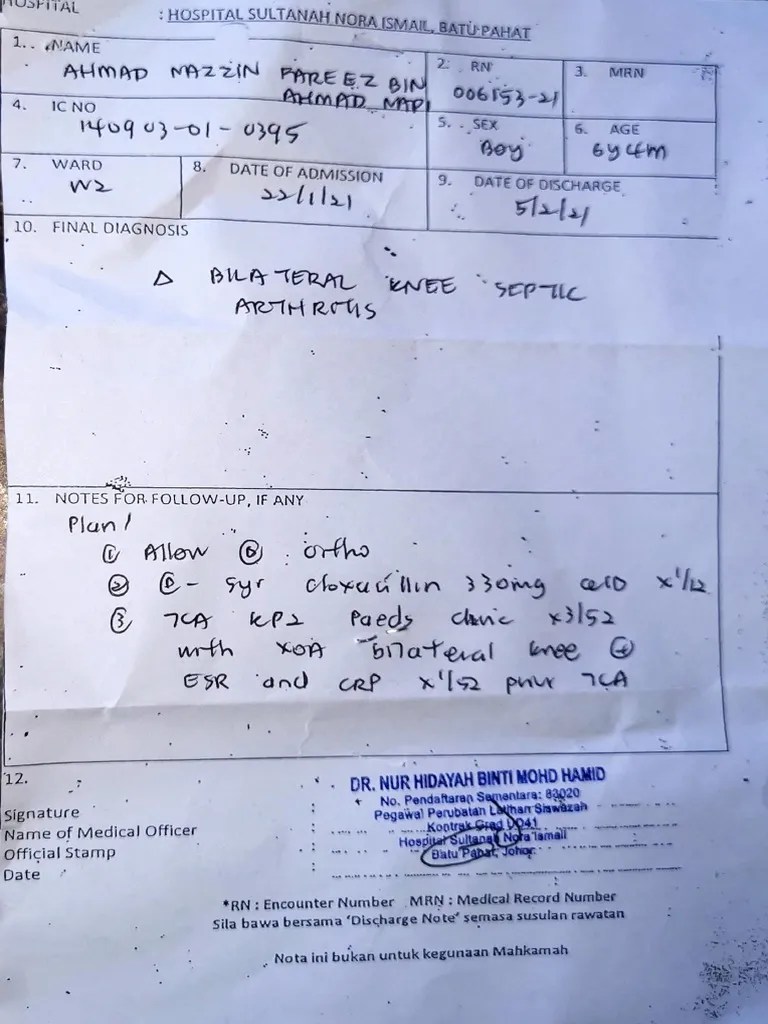 HOSPITAL : HOSPITAL SULTANAH NORA ISMAIL, BATU PAHAT
1. NAME
AHMAD NAZZIN FAREEZ BIN
AHMAD
2. RN
006153-21
3. MRN
4. IC NO
140903-01-0395
5. SEX
Boy
6. AGE
6y4m
7. WARD
W2
8. DATE OF ADMISSION
22/1/21
9. DATE OF DISCHARGE
5/2/21
10. FINAL DIAGNOSIS
Δ BILATERAL KNEE SEPTIC
ARTHRITIS
11. NOTES FOR FOLLOW-UP, IF ANY
Plan/
① Allow Ⓓ ortho
② syr cloxacillin 330mg QID x 1/12
③ TCA KP2 Paeds clinic x3/52
with bilateral knee ⊕
ESR and CRP x 1/52 prior TCA
12.
Signature :
Name of Medical Officer :
Official Stamp :
Date :
DR. NUR HIDAYAH BINTI MOHD HAMID
No. Pendaftaran Sementara: 83020
Pegawai Perubatan Latihan Siswazah
Kontrak Gred UD41
Hospital Sultanah Nora Ismail
Batu Pahat, Johor.
*RN : Encounter Number MRN : Medical Record Number
Sila bawa bersama 'Discharge Note' semasa susulan rawatan
Nota ini bukan untuk kegunaan Mahkamah